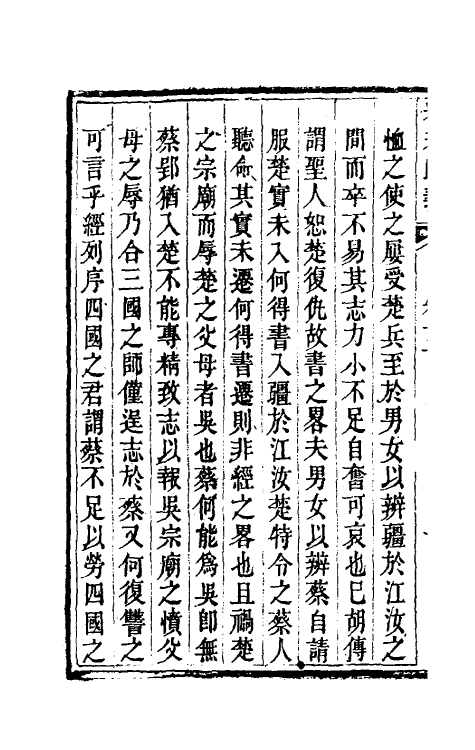 恤之使之屢受楚兵至於男女以辨疆於江汝之
間而卒不易其志力小不足自奮可哀也已胡傳
謂聖人恕楚復仇故書之畧夫男女以辨蔡自請
服楚實未入何得書入疆於江汝楚特令之蔡人
聽命其實未遷何得書遷則非經之畧也且禍楚
之宗廟而辱楚之父母者吳也蔡何能爲吳卽無
蔡郢猶入楚不能專精致志以報吳宗廟之憤父
母之辱乃合三國之師僅逞志於蔡又何復讐之
可言乎經列序四國之君謂蔡不足以勞四國之